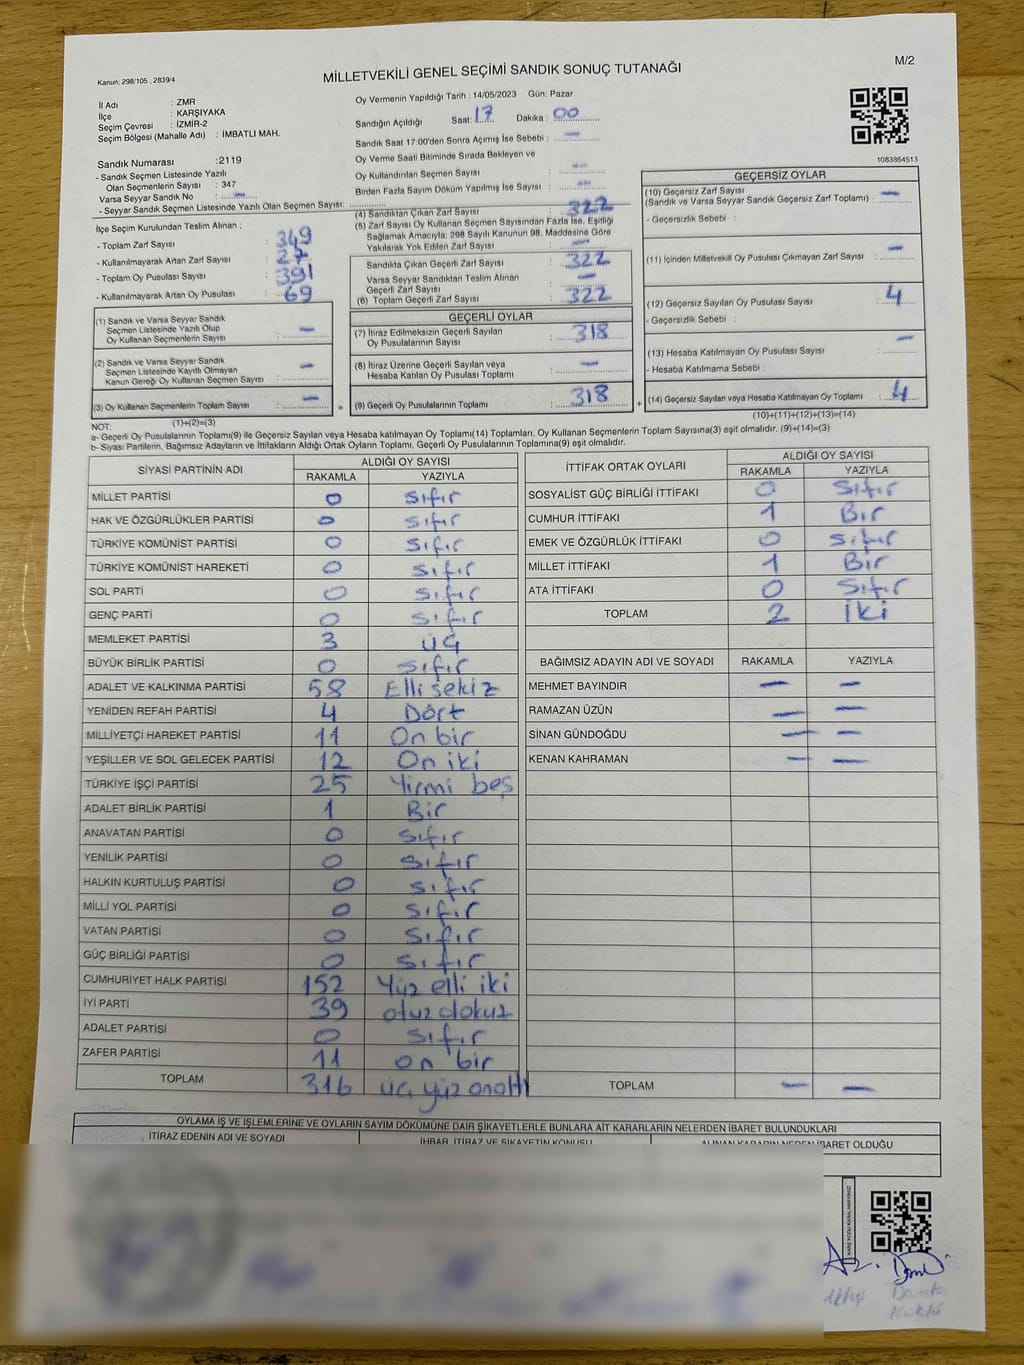 Kanun: 298/105 , 2839/4
MİLLETVEKİLİ GENEL SEÇİMİ SANDIK SONUÇ TUTANAĞI
M/2
İl Adı : ZMR
İlçe : KARŞIYAKA
Seçim Çevresi : İZMİR-2
Seçim Bölgesi (Mahalle Adı) : İMBATLI MAH.
Oy Vermenin Yapıldığı Tarih : 14/05/2023 Gün: Pazar
Sandığın Açıldığı Saat: 17 Dakika : 00
Sandık Saat 17:00'den Sonra Açılmış İse Sebebi : —
Oy Verme Saati Bitiminde Sırada Bekleyen ve
Oy Kullandırılan Seçmen Sayısı : —
Birden Fazla Sayım Döküm Yapılmış İse Sayısı : —
1083864513
Sandık Numarası :2119
- Sandık Seçmen Listesinde Yazılı
Olan Seçmenlerin Sayısı : 347
Varsa Seyyar Sandık No : —
- Seyyar Sandık Seçmen Listesinde Yazılı Olan Seçmen Sayısı:
İlçe Seçim Kurulundan Teslim Alınan ;
- Toplam Zarf Sayısı : 349
- Kullanılmayarak Artan Zarf Sayısı : 27
- Toplam Oy Pusulası Sayısı : 391
- Kullanılmayarak Artan Oy Pusulası : 69
(1) Sandık ve Varsa Seyyar Sandık
Seçmen Listesinde Yazılı Olup
Oy Kullanan Seçmenlerin Sayısı : —
(2) Sandık ve Varsa Seyyar Sandık
Seçmen Listesinde Kayıtlı Olmayan
Kanun Gereği Oy Kullanan Seçmen Sayısı : —
(3) Oy Kullanan Seçmenlerin Toplam Sayısı : —
(1)+(2)=(3)
(4) Sandıktan Çıkan Zarf Sayısı : 322
(5) Zarf Sayısı Oy Kullanan Seçmen Sayısından Fazla İse, Eşitliği
Sağlamak Amacıyla; 298 Sayılı Kanunun 98. Maddesine Göre
Yakılarak Yok Edilen Zarf Sayısı : —
Sandıkta Çıkan Geçerli Zarf Sayısı : 322
Varsa Seyyar Sandıktan Teslim Alınan
Geçerli Zarf Sayısı : —
(6) Toplam Geçerli Zarf Sayısı : 322
GEÇERLİ OYLAR
(7) İtiraz Edilmeksizin Geçerli Sayılan
Oy Pusulalarının Sayısı : 318
(8) İtiraz Üzerine Geçerli Sayılan veya
Hesaba Katılan Oy Pusulası Toplamı : —
= (9) Geçerli Oy Pusulalarının Toplamı : 318 +
GEÇERSİZ OYLAR
(10) Geçersiz Zarf Sayısı
(Sandık ve Varsa Seyyar Sandık Geçersiz Zarf Toplamı) : —
- Geçersizlik Sebebi :
(11) İçinden Milletvekili Oy Pusulası Çıkmayan Zarf Sayısı : —
(12) Geçersiz Sayılan Oy Pusulası Sayısı : 4
- Geçersizlik Sebebi :
(13) Hesaba Katılmayan Oy Pusulası Sayısı : —
- Hesaba Katılmama Sebebi :
(14) Geçersiz Sayılan veya Hesaba Katılmayan Oy Toplamı : 4
(10)+(11)+(12)+(13)=(14)
NOT:
a- Geçerli Oy Pusulalarının Toplamı(9) ile Geçersiz Sayılan veya Hesaba katılmayan Oy Toplamı(14) Toplamları, Oy Kullanan Seçmenlerin Toplam Sayısına(3) eşit olmalıdır. (9)+(14)=(3)
b- Siyasi Partilerin, Bağımsız Adayların ve İttifakların Aldığı Ortak Oyların Toplamı, Geçerli Oy Pusulalarının Toplamına(9) eşit olmalıdır.
SİYASİ PARTİNİN ADI ALDIĞI OY SAYISI
RAKAMLA YAZIYLA
MİLLET PARTİSİ 0 Sıfır
HAK VE ÖZGÜRLÜKLER PARTİSİ 0 Sıfır
TÜRKİYE KOMÜNİST PARTİSİ 0 Sıfır
TÜRKİYE KOMÜNİST HAREKETİ 0 Sıfır
SOL PARTİ 0 Sıfır
GENÇ PARTİ 0 Sıfır
MEMLEKET PARTİSİ 3 üç
BÜYÜK BİRLİK PARTİSİ 0 Sıfır
ADALET VE KALKINMA PARTİSİ 58 Elli sekiz
YENİDEN REFAH PARTİSİ 4 Dört
MİLLİYETÇİ HAREKET PARTİSİ 11 On bir
YEŞİLLER VE SOL GELECEK PARTİSİ 12 On iki
TÜRKİYE İŞÇİ PARTİSİ 25 Yirmi beş
ADALET BİRLİK PARTİSİ 1 Bir
ANAVATAN PARTİSİ 0 Sıfır
YENİLİK PARTİSİ 0 Sıfır
HALKIN KURTULUŞ PARTİSİ 0 Sıfır
MİLLİ YOL PARTİSİ 0 Sıfır
VATAN PARTİSİ 0 Sıfır
GÜÇ BİRLİĞİ PARTİSİ 0 Sıfır
CUMHURİYET HALK PARTİSİ 152 Yüz elli iki
İYİ PARTİ 39 otuz dokuz
ADALET PARTİSİ 0 Sıfır
ZAFER PARTİSİ 11 on bir
TOPLAM 316 üç yüz onaltı
İTTİFAK ORTAK OYLARI ALDIĞI OY SAYISI
RAKAMLA YAZIYLA
SOSYALİST GÜÇ BİRLİĞİ İTTİFAKI 0 Sıfır
CUMHUR İTTİFAKI 1 Bir
EMEK VE ÖZGÜRLÜK İTTİFAKI 0 Sıfır
MİLLET İTTİFAKI 1 Bir
ATA İTTİFAKI 0 Sıfır
TOPLAM 2 İki
BAĞIMSIZ ADAYIN ADI VE SOYADI RAKAMLA YAZIYLA
MEHMET BAYINDIR — —
RAMAZAN ÜZÜN — —
SİNAN GÜNDOĞDU — —
KENAN KAHRAMAN — —
TOPLAM — —
OYLAMA İŞ VE İŞLEMLERİNE VE OYLARIN SAYIM DÖKÜMÜNE DAİR ŞİKAYETLERLE BUNLARA AİT KARARLARIN NELERDEN İBARET BULUNDUKLARI
İTİRAZ EDENİN ADI VE SOYADI İHBAR, İTİRAZ VE ŞİKAYETİN KONUSU ALINAN KARARIN NEDEN İBARET OLDUĞU